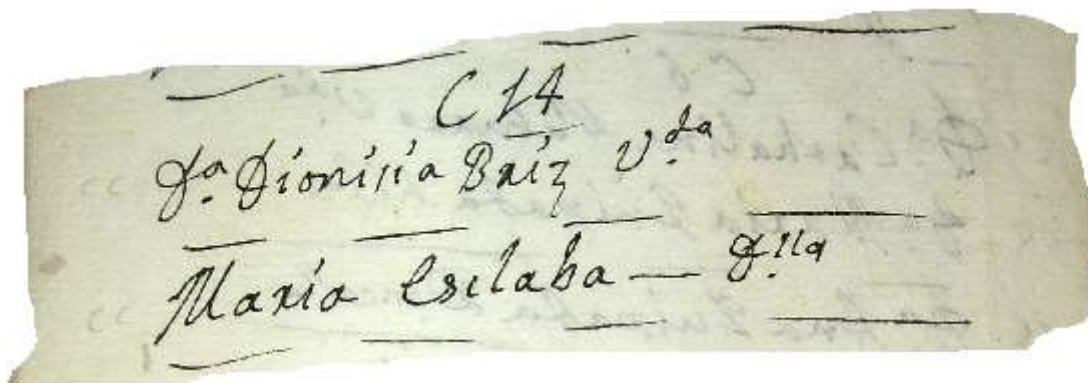 C 14
Da. Dionisia Baiz V.da
Maria Esclaba — D.lla